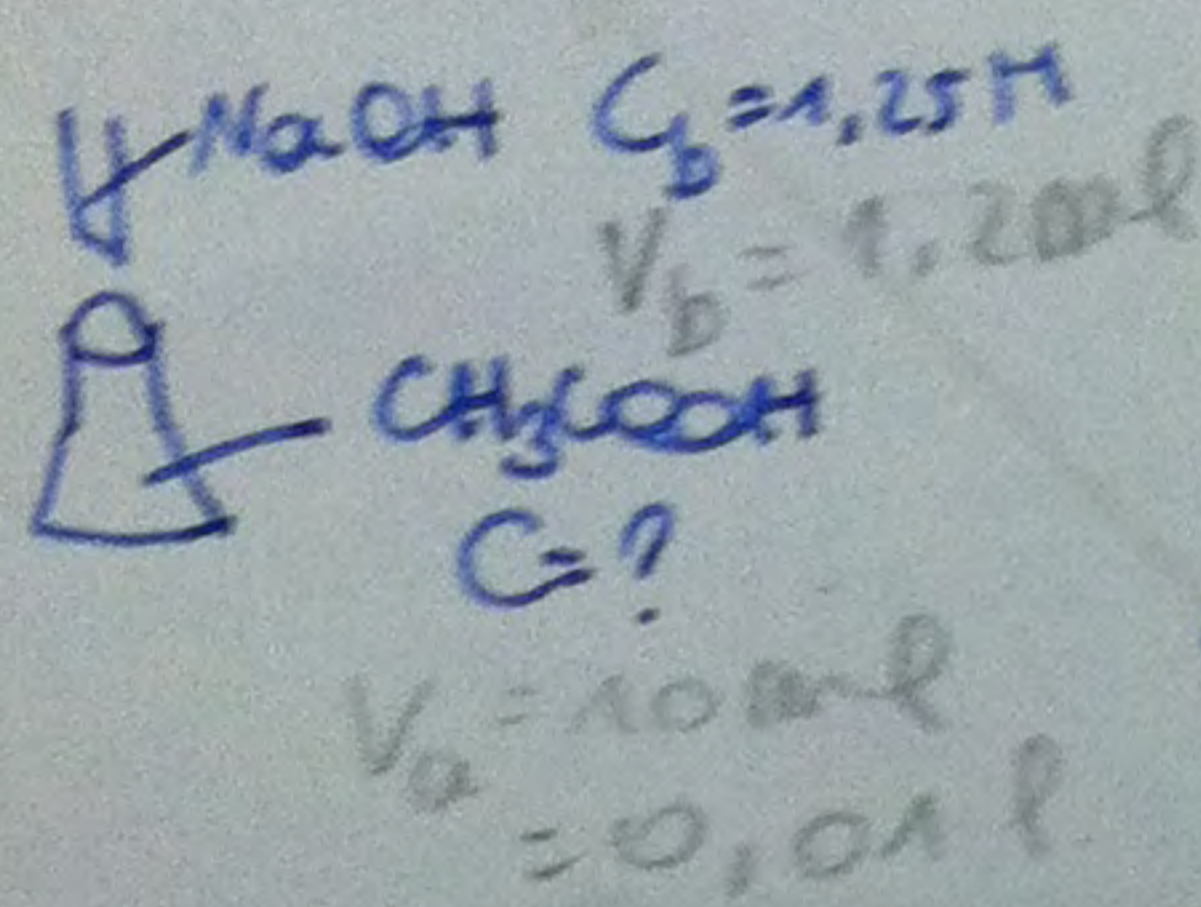 NaOH C_b = 1,25 M
V_b = 1,2 ml
CH₃COOH
C = ?
V_a = 10 ml
= 0,01 l